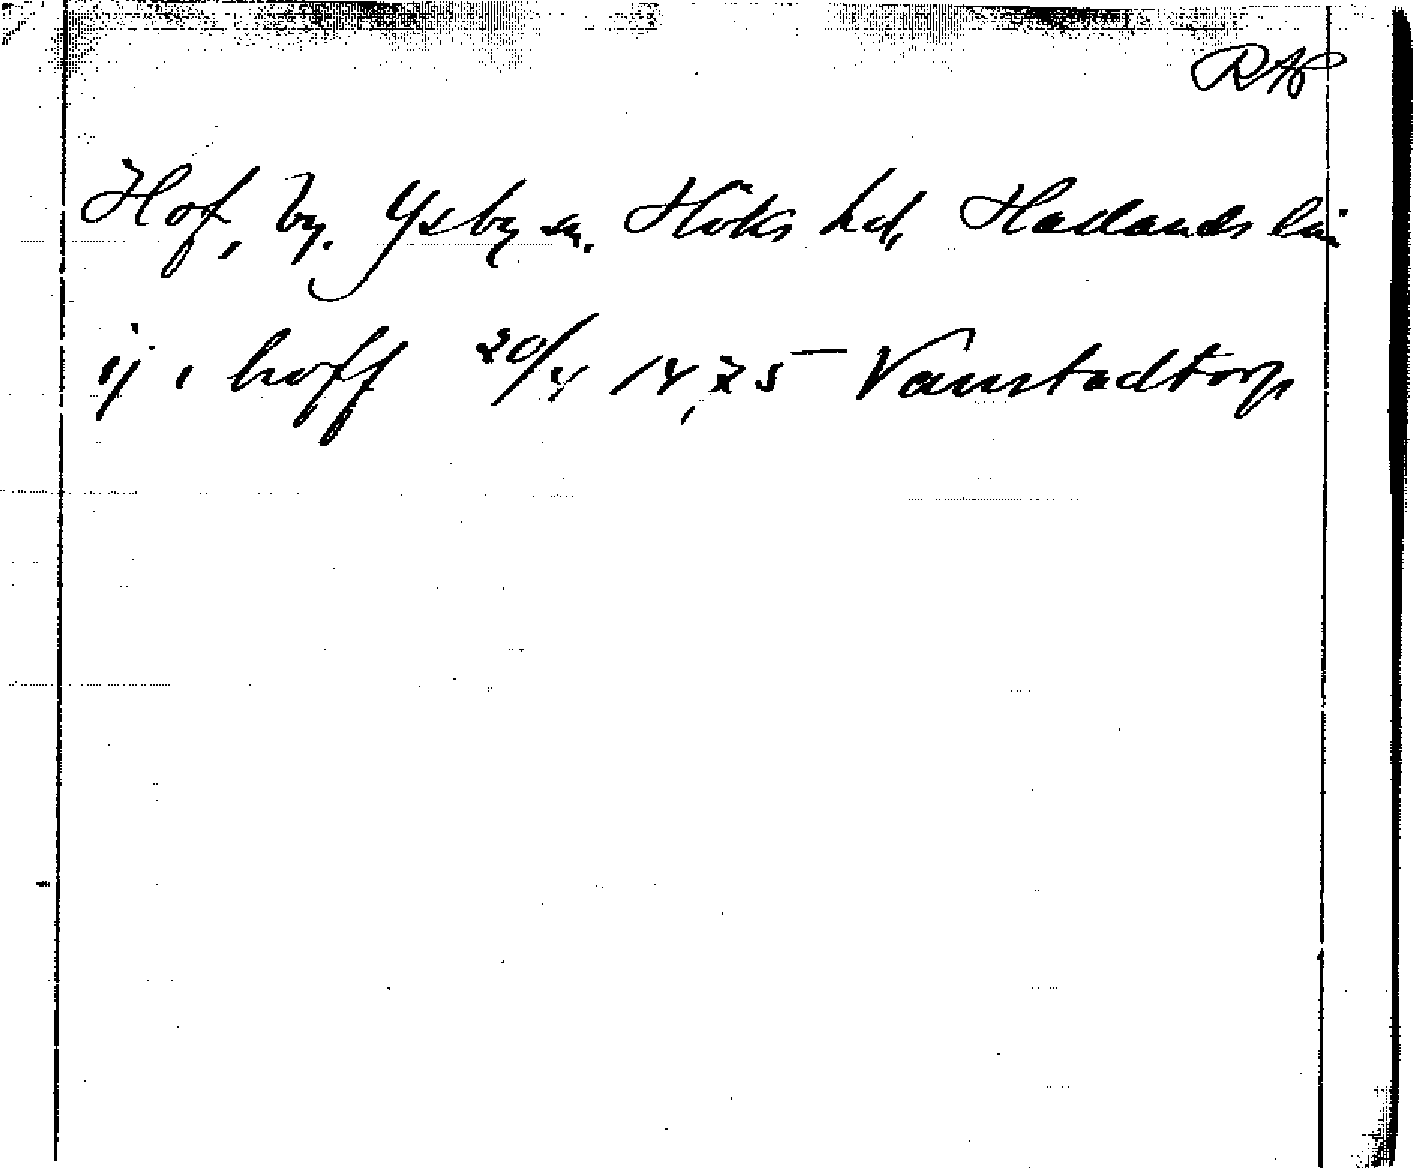 RAP
Hof, by. Ysby sn. Höks hd, Hallands län
ij i hoff 20/4 1475 Vamstadtorp